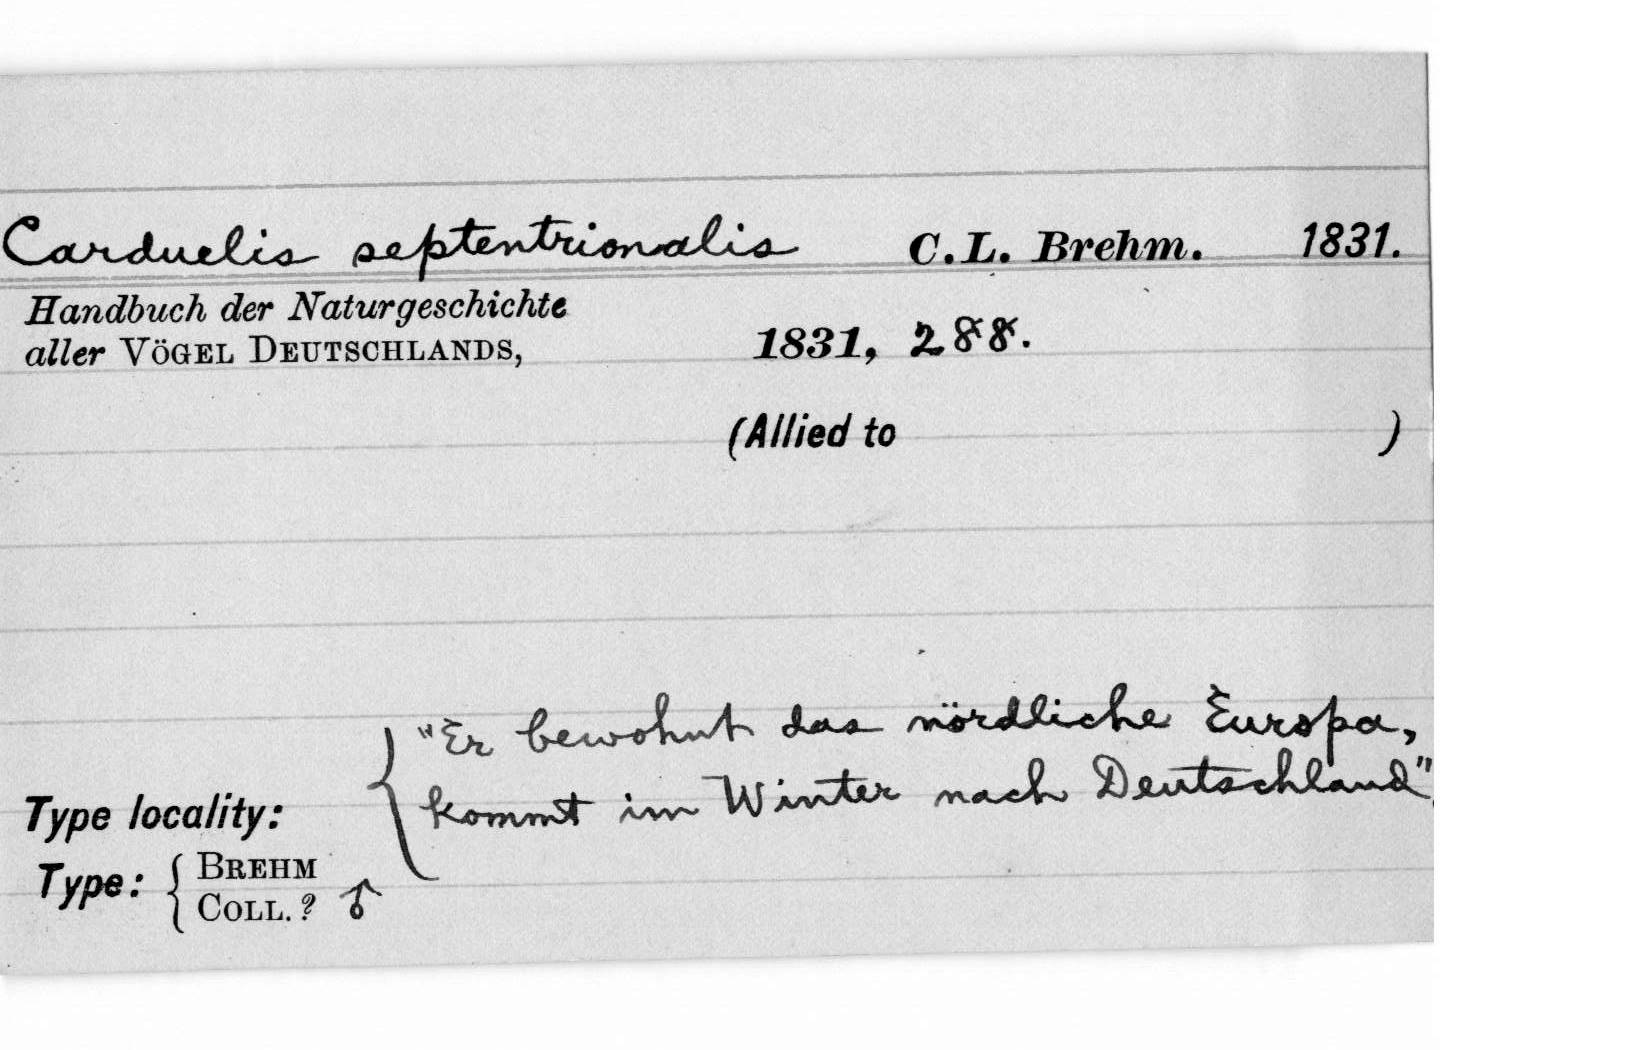 Carduelis septentrionalis C.L. Brehm. 1831.
Handbuch der Naturgeschichte
aller VÖGEL DEUTSCHLANDS, 1831, 288.
(Allied to )
"Er bewohnt das nördliche Europa,
kommt im Winter nach Deutschland".
Type locality:
Type: { BREHM
COLL. ? ♂